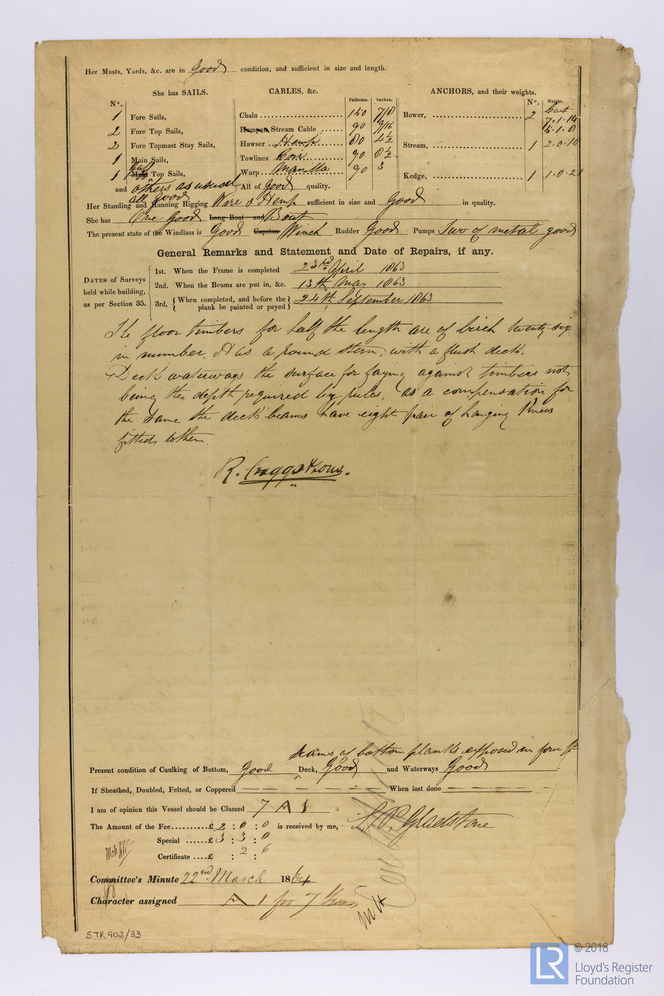 Her Masts, Yards, &c. are in Good condition, and sufficient in size and length.
She has SAILS. CABLES, &c. ANCHORS, and their weights.
N°. Fathoms. Inches. N°. Weight.
1 Fore Sails, Chain 150 7/8 Bower, 2 7.1.14
2 Fore Top Sails, Hempen Stream Cable 90 9/16
2 Fore Topmast Stay Sails, Hawser Hemp 80 4½ Stream, 1 2.0.16
1 Main Sails, Towlines 90
1 Top Sails, Warp Manilla 90 3 Kedge, 1 1.0.21
and others as usual All of good quality.
all good
Her Standing and Running Rigging Wire & Hemp sufficient in size and Good in quality.
She has One Good Long Boat and Boat
The present state of the Windlass is Good Capstan Winch Rudder Good Pumps Two of metal good
General Remarks and Statement and Date of Repairs, if any.
DATES of Surveys held while building, as per Section 35.
1st. When the Frame is completed 23rd April 1863
2nd. When the Beams are put in, &c. 13th May 1863
3rd. {When completed, and before the plank be painted or payed} 24th September 1863
The floor timbers for half the length are of birch twenty six
in number. It has a round stern; with a flush deck.
Deck waterways the surface for faying against timbers not
being the depth required by rules, as a compensation for
the same the deck beams have eight pair of hanging knees
fitted to them.
R. Craggs & Sons.
seams of bottom planks exposed in
Present condition of Caulking of Bottom, Good Deck, Good and Waterways Good
If Sheathed, Doubled, Felted, or Coppered When last done
I am of opinion this Vessel should be Classed 7 A 1
The Amount of the Fee £ 2 : 0 : 0 is received by me, Gladstone
Special £ 3 : 3 : 0
Certificate £ : 2 : 6
Committee's Minute 22nd March 1864
Character assigned A 1 for 7 Years
STK902/33
© 2018
LR
Lloyd's Register
Foundation